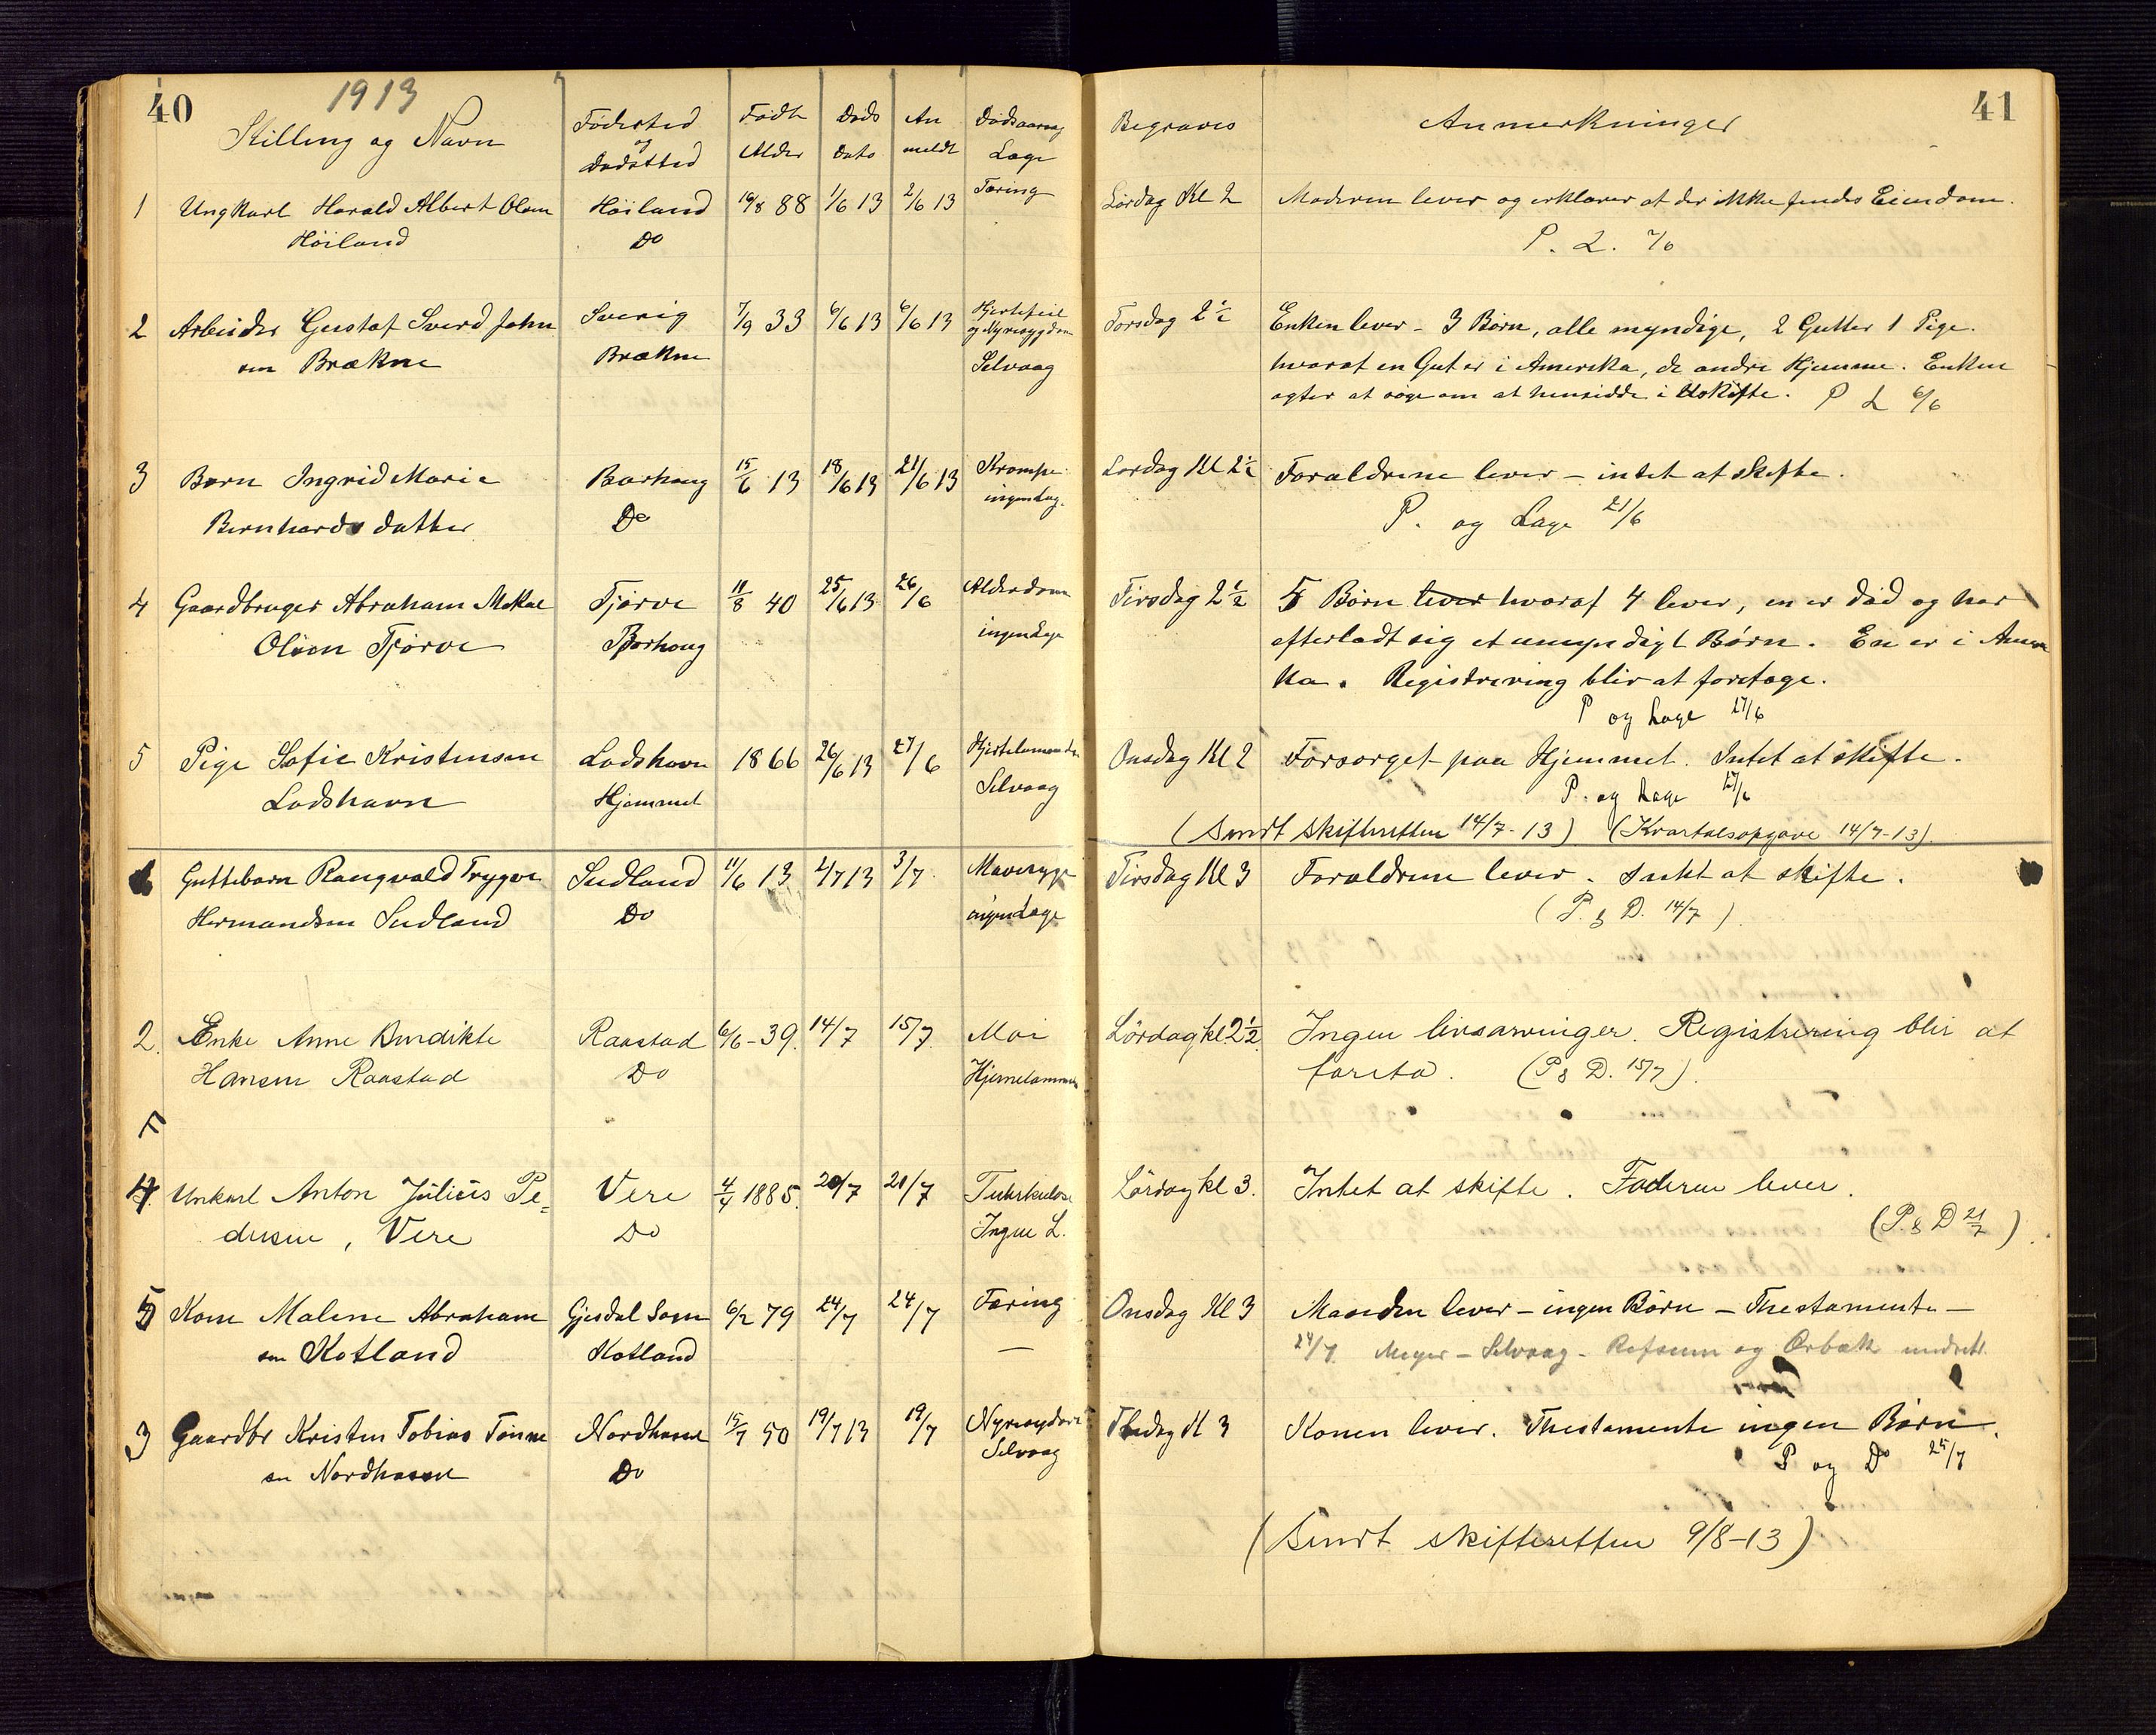 40
1913
41
Stilling og Navn
Fødested og Dødssted
Født Alder
Døds Dato
An meldt
Dødsaarsag Læge
Begraves
Anmerkninger
1 Ungkarl Harald Albert Olsen Høiland 88 1/6 13 2/6 13 Tæring Lørdag Kl 2 Moderen lever og erklærer at der ikke findes Eiendom.
Høiland Do P. L.
2 Arbeider Gustaf Sverd John Sverig 7/9 33 6/6 13 6/6 13 Hjertefeil Torsdag 2½ Enken lever - 3 Børn, alle myndige, 2 Gutter 1 Pige.
sen Brækne Brækne og Nyresygdom Selvaag hvoraf en Gut er i Amerika, de andre Hjemme. Enken
agter at søge om at hensidde i Uskifte. P L 6/6
3 Barn Ingrid Marie Borhaug 15/6 13 18/6 13 21/6 13 Krampe Lørdag Kl 2½ Forældrene lever - intet at skifte.
Bernhards datter Do ingen Læg. P. og Læge 21/6
4 Gaardbruger Abraham Mikal Tjørve 11/8 40 25/6 13 26/6 Alderdom Tirsdag 2½ 5 Børn lever hvoraf 4 lever, en er død og har
Olsen Tjørve Borhaug ingen Læge efterladt sig et umyndigt Børn. En er i Ameri
ka. Registrering blir at foretage.
P og Læge 27/6
5 Pige Sofie Kristensen Lodshavn 1866 26/6 13 27/6 Selvaag Onsdag Kl 2 Forsørget paa Hjemmet. Intet at skifte.
Lodshavn Hjemmet P. og Læge 27/6
(Sendt skifteretten 14/7-13) (Kvartalsopgave 14/7-13)
1 Guttebarn Rangvald Trygve Sudland 11/6 13 2/7 13 3/7 Mavesyge Tirsdag Kl 3 Forældrene lever. Intet at skifte.
Hermandsen Sudland Do ingen Læge (P. & D. 14/7)
2. Enke Anne Bendikte Raastad 6/6-39. 14/7 15/7. Moi Lørdag kl 2½. Ingen livsarvinger. Registrering blir at
Hansen Raastad Do foreta. (P & D. 15/7).
4. Unkarl Anton Julius Pe= Vere 1885. 20/7 21/7 Tuberkulose Lørdag kl 3. Intet at skifte. Faderen lever.
dersen, Vere Do Ingen L. (P. & D 21/7).
5 Kone Malene Abraham Gjesdal Sogn 6/2 79 24/7 24/7 Tæring Onsdag Kl 3 Manden lever - ingen Børn - Thestamente -
sen Kotland Kotland — 24/7. Meyer - Selvaag - Refsum og Ørbæk underet.
3 Gaardbr Kristen Tobias Tønne Nordhassel 15/7 50 19/7 13 19/7 Nyresygdom Kl 3 Konen lever. Thestamente ingen Børn.
sen Nordhassel Do Selvaag P og D 25/7
(Sendt skifteretten 9/8-13)